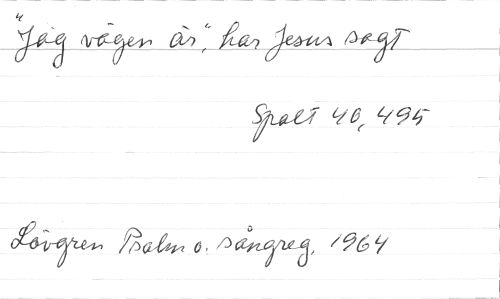 "Jag vägen är", har Jesus sagt
Spalt 40, 495
Lövgren Psalm o. sångreg. 1964